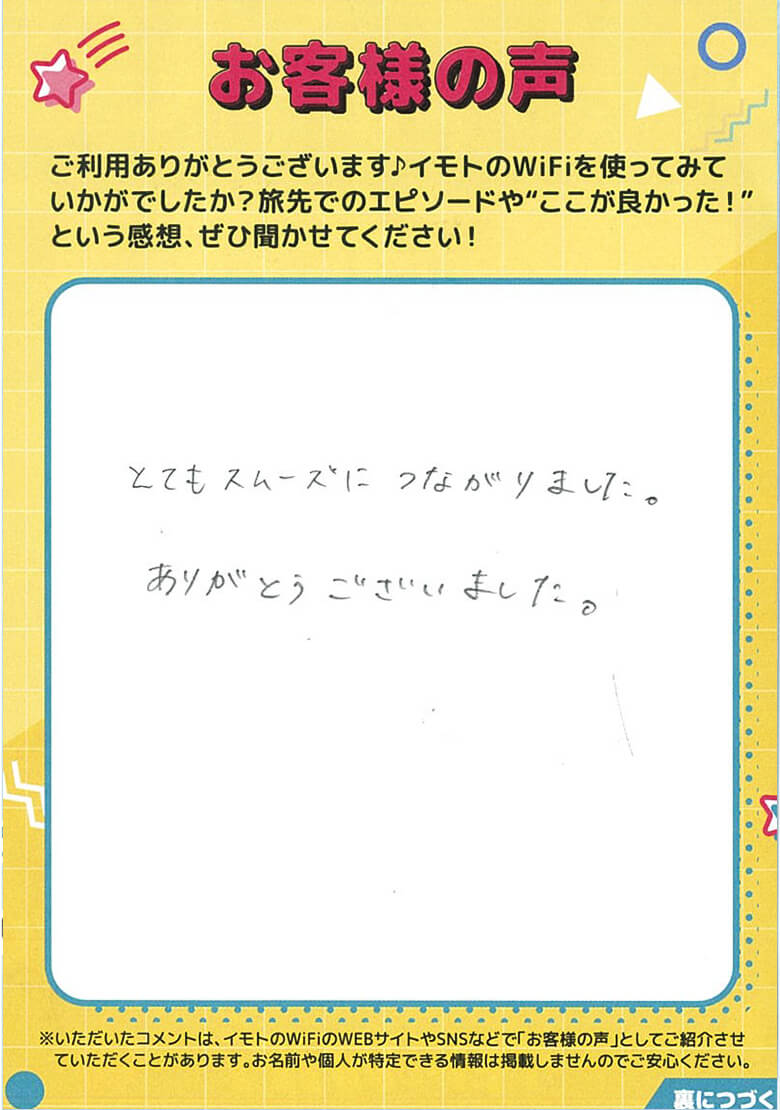 お客様の声
ご利用ありがとうございます♪イモトのWiFiを使ってみて
いかがでしたか？旅先でのエピソードや“ここが良かった！”
という感想、ぜひ聞かせてください！
とてもスムーズに つながりました。
ありがとう ございました。
※いただいたコメントは、イモトのWiFiのWEBサイトやSNSなどで「お客様の声」としてご紹介させ
ていただくことがあります。お名前や個人が特定できる情報は掲載しませんのでご安心ください。
裏につづく